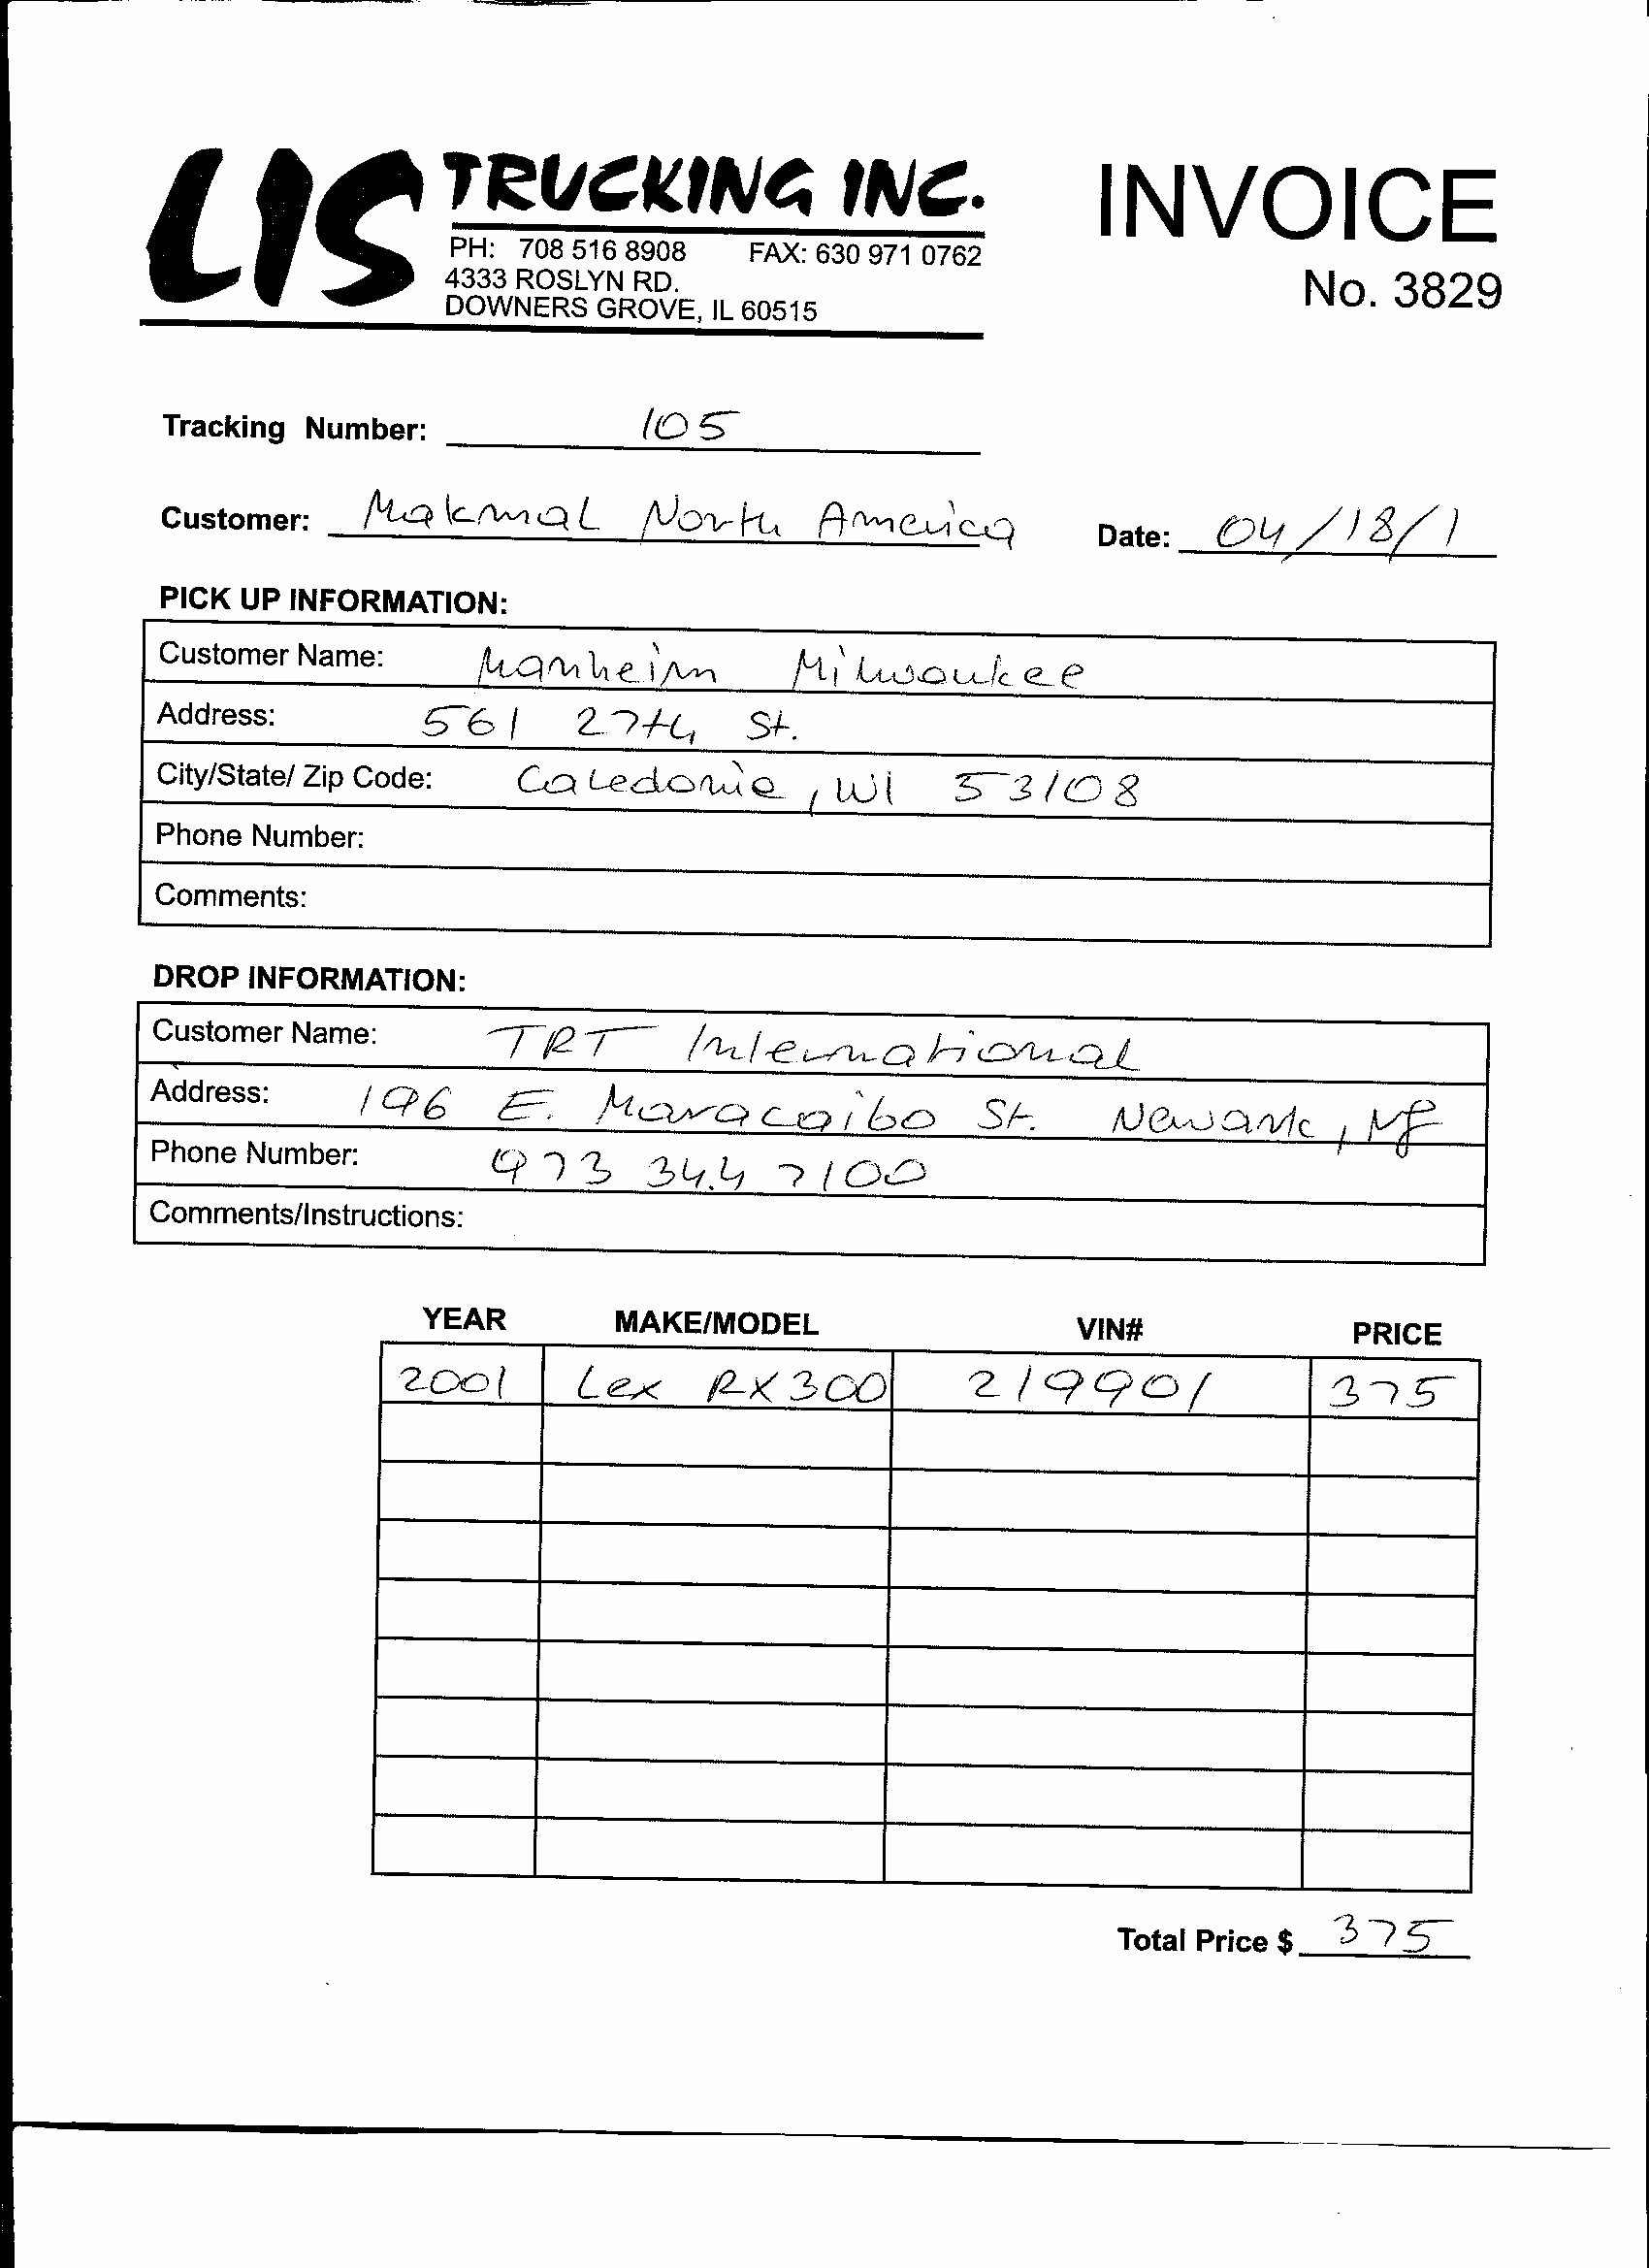 LIS TRUCKING INC.
INVOICE
PH: 708 516 8908 FAX: 630 971 0762
4333 ROSLYN RD.
DOWNERS GROVE, IL 60515
No. 3829
Tracking Number: 105
Customer: Makmal North America Date: 04/18/1
PICK UP INFORMATION:
Customer Name: Manheim Milwaukee
Address: 561 27th St.
City/State/ Zip Code: Caledonie, WI 53108
Phone Number:
Comments:
DROP INFORMATION:
Customer Name: TRT International
Address: 196 E. Maracaibo St. Newark, NJ
Phone Number: 973 344 7100
Comments/Instructions:
YEAR MAKE/MODEL VIN# PRICE
2001 Lex RX300 219901 375
Total Price $ 375